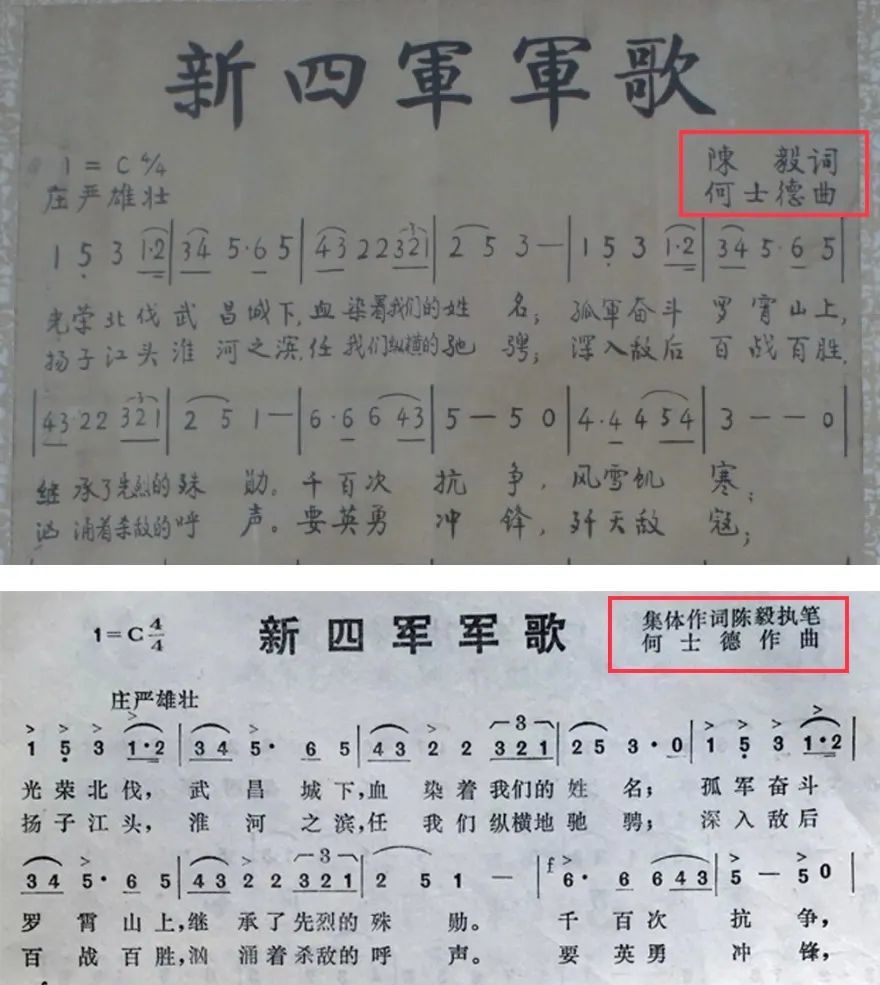 新四軍軍歌
1=C 4/4
陳 毅词
庄严雄壮
何士德曲
1 5 3 1·2 | 3 4 5·6 5 | 4 3 2 2 3 2 1 | 2 5 3 — | 1 5 3 1·2 | 3 4 5·6 5 |
光荣北伐武昌城下,血染着我们的姓名;孤軍奋斗罗霄山上,
扬子江头淮河之滨,任我们纵横的驰骋;深入敌后百战百胜,
| 4 3 2 2 3 2 1 | 2 5 1 — | 6·6 6 4 3 | 5 — 5 0 | 4·4 4 5 4 | 3 — — 0 |
继承了先烈的殊勋。千百次抗争,风雪饥寒;
汹涌着杀敌的呼声。要英勇冲锋,歼灭敌寇;
1=C 4/4
新四军军歌
集体作词陈毅执笔
何士德作曲
庄严雄壮
1 5 3 1·2 | 3 4 5· 6 5 | 4 3 2 2 3 2 1 | 2 5 3·0 | 1 5 3 1·2 |
光荣北伐,武昌城下,血染着我们的姓名;孤军奋斗
扬子江头,淮河之滨,任我们纵横地驰骋;深入敌后
3 4 5· 6 5 | 4 3 2 2 3 2 1 | 2 5 1 — | f 6· 6 6 4 3 | 5 — 5 0 |
罗霄山上,继承了先烈的殊勋。千百次抗争,
百战百胜,汹涌着杀敌的呼声。要英勇冲锋,